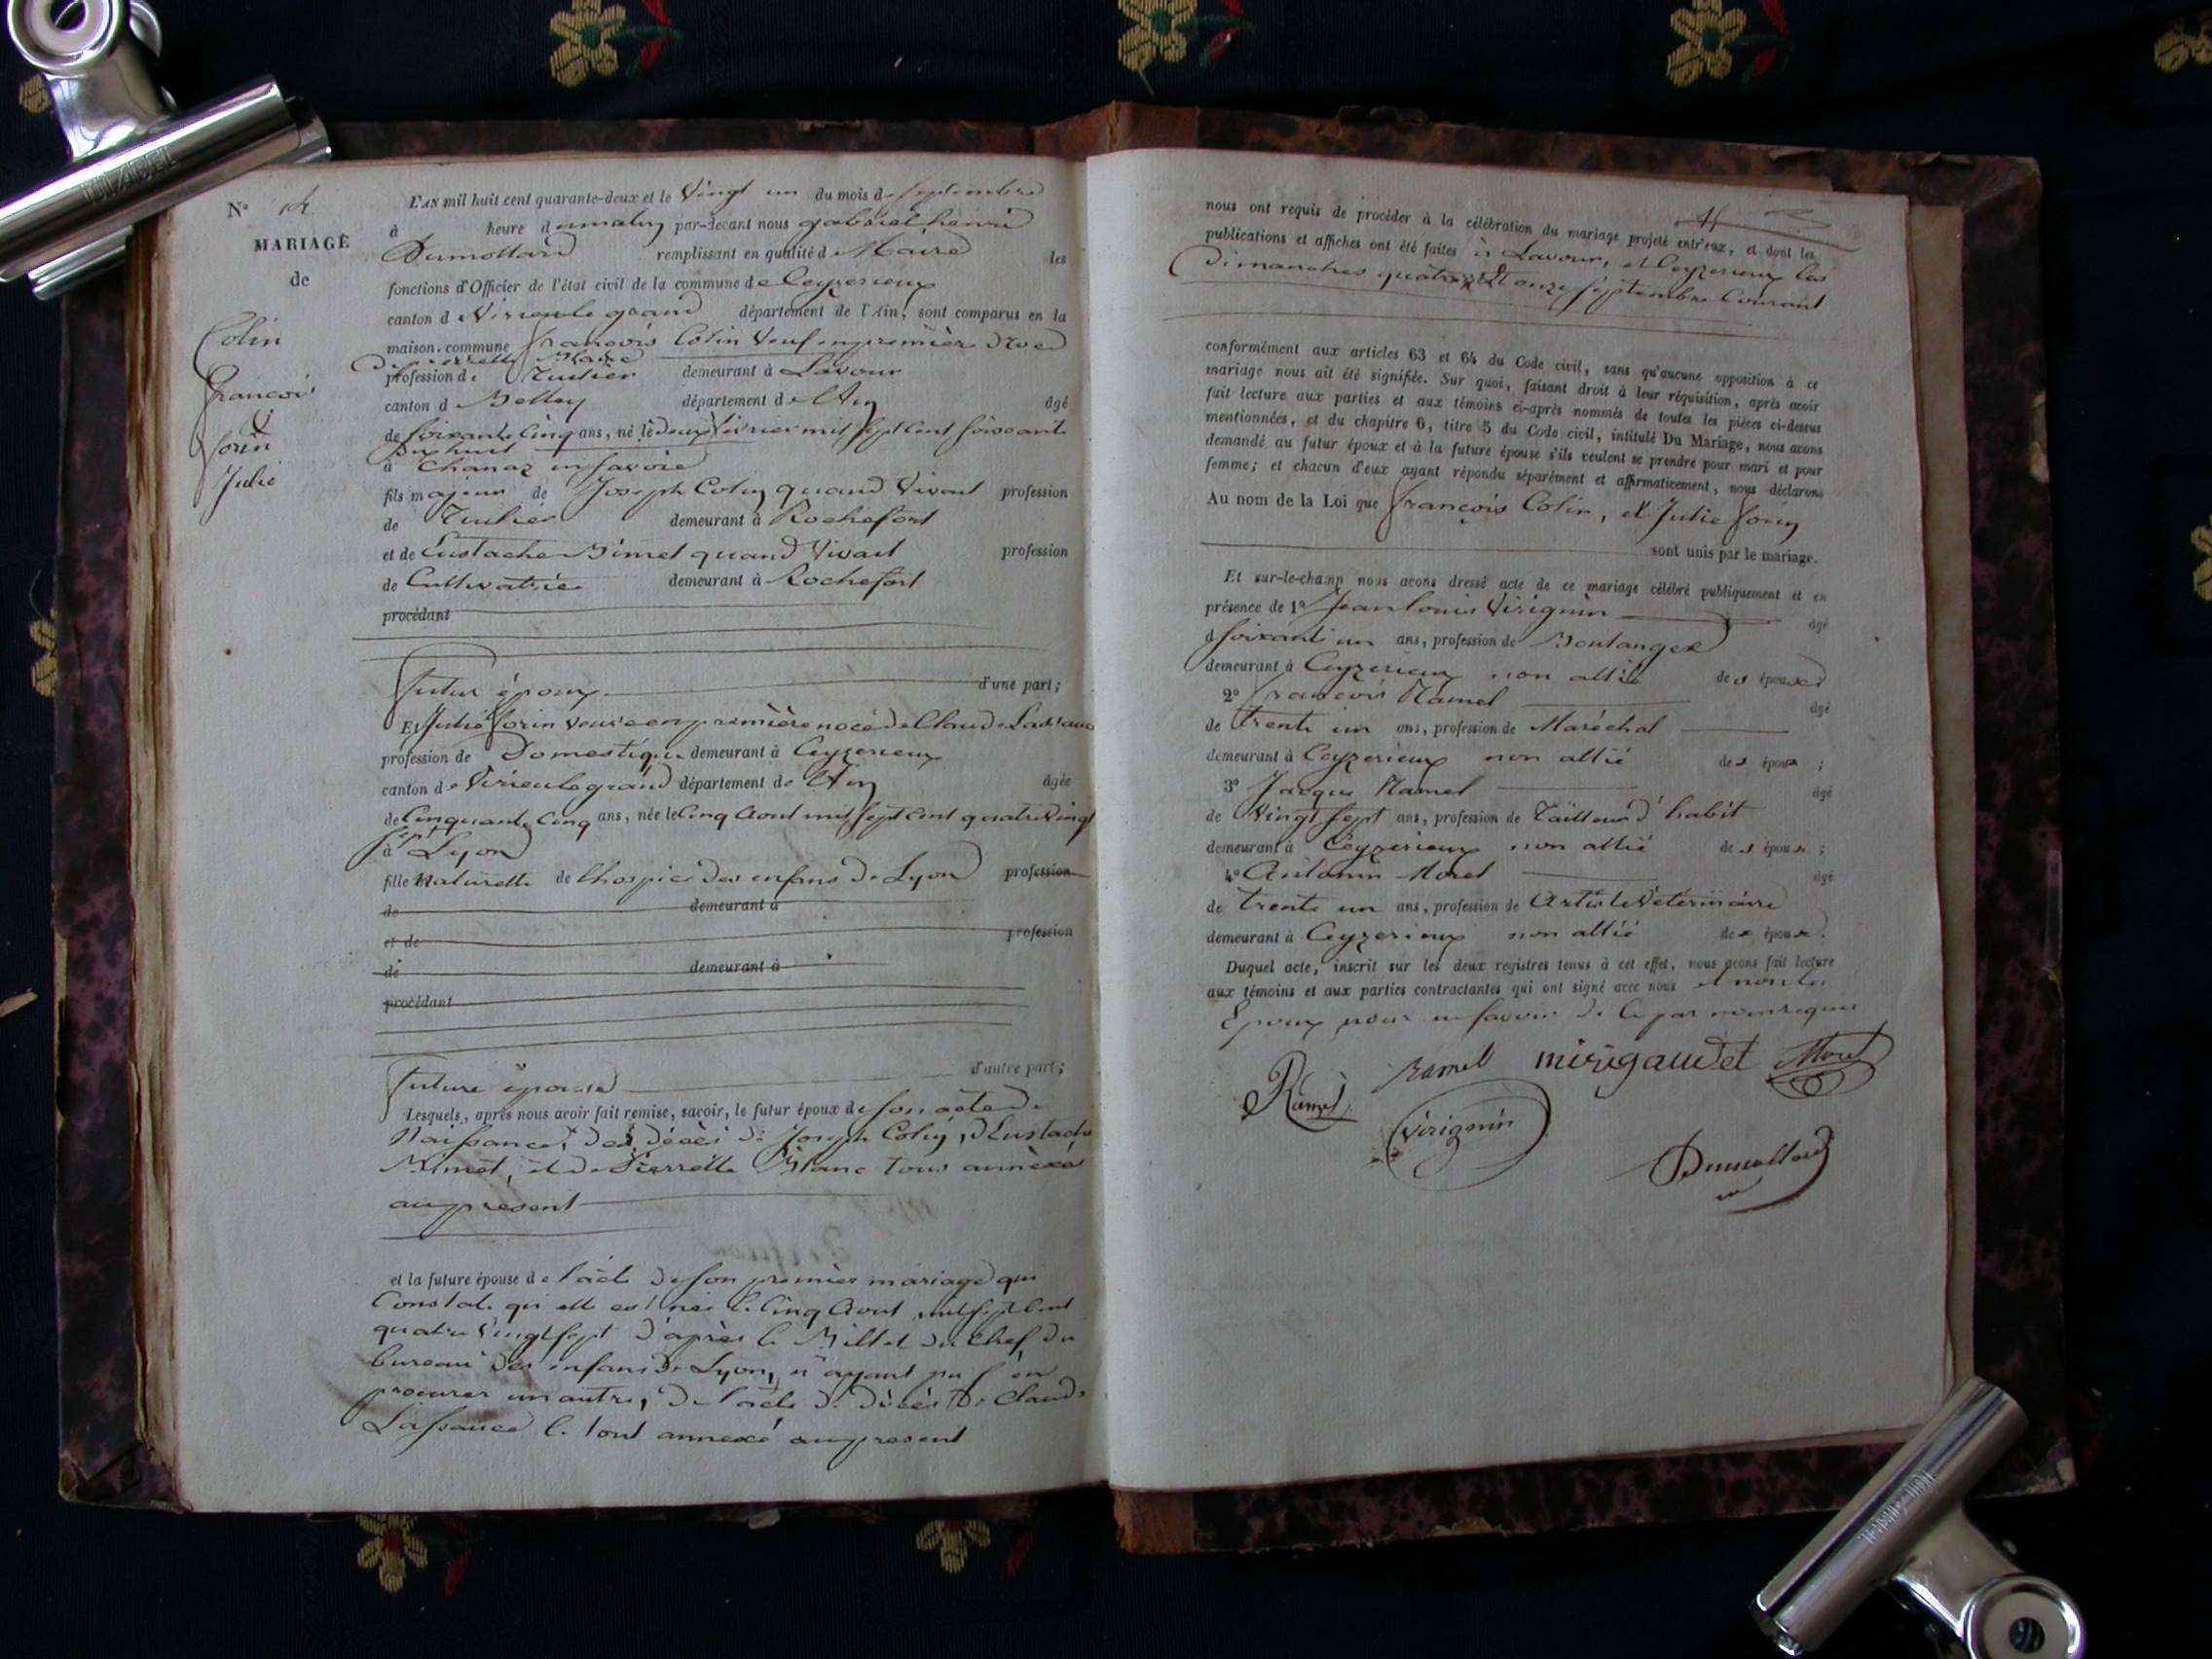 N°
MARIAGE
de
Colin
francois
&
Jorin
Julie
L'AN mil huit cent quarante-deux et le Vingt un du mois de septembre
à heure du matin par-devant nous gabriel henri
Dumollard remplissant en qualité de Maire les
fonctions d'Officier de l'état civil de la commune de Ceyzerieux
canton de Virieule grand département de l'Ain, sont comparus en la
maison commune francois Colin Veuf en première Noce
De pierrette Blanc
profession de Tuilier demeurant à Lavour
canton de Belley département de l'Ain âgé
de soixante cinq ans, né le deux février mil sept cent soixante
Dix huit
à Chanaz en savoie
fils majeur de Joseph Colin quand Vivait profession
de Tuilier demeurant à Rochefort
et de Eustache Mimet quand Vivait profession
de Cultivatrice demeurant à Rochefort
procédant
futur époux d'une part;
Et Julie Jorin veuve en première noce de Claude
profession de Domestique demeurant à Ceyzerieux
canton de Virieulegrand département de l'Ain âgée
de Cinquante Cinq ans, née le Cinq Aout mil sept Cent quatre Vingt
sept
à Lyon
fille Naturelle de l'hospice des enfans de Lyon profession
de demeurant à
et de profession
de demeurant à
procédant
future épouse d'autre part;
Lesquels, après nous avoir fait remise, savoir, le futur époux de son acte de
Naissance, des décès de Joseph Colin, d'Eustache
Mimet, et de Pierrette Blanc tous annexés
au present
et la future épouse de l'acte de son premier mariage qui
Constate qu'elle est née le Cinq Aout mil sept Cent
quatre Vingt sept d'après le Billet du chef du
bureau des enfans de Lyon, n'ayant pu s'en
procurer un autre, de l'acte de décès de Claude
Lassauce le tout annexé au present
nous ont requis de procéder à la célébration du mariage projeté entr'eux, et dont les
publications et affiches ont été faites à Lavour, et Ceyzerieux les
Dimanches quatre et onze septembre Courant
conformément aux articles 63 et 64 du Code civil, sans qu'aucune opposition à ce
mariage nous ait été signifiée. Sur quoi, faisant droit à leur réquisition, après avoir
fait lecture aux parties et aux témoins ci-après nommés de toutes les pièces ci-dessus
mentionnées, et du chapitre 6, titre 5 du Code civil, intitulé Du Mariage, nous avons
demandé au futur époux et à la future épouse s'ils veulent se prendre pour mari et pour
femme; et chacun d'eux ayant répondu séparément et affirmativement, nous déclarons
Au nom de la Loi que francois Colin, et Julie Jorin
sont unis par le mariage.
Et sur-le-champ nous avons dressé acte de ce mariage célébré publiquement et en
présence de 1° Jean Louis Virignin âgé
de soixante un ans, profession de Boulanger
demeurant à Ceyzerieux non allié des époux
2° francois Ramel âgé
de trente un ans, profession de Maréchal
demeurant à Ceyzerieux non allié des époux ;
3° Jacque Ramel âgé
de Vingt sept ans, profession de Tailleur d'habit
demeurant à Ceyzerieux non allié des époux ;
4° Antonin Morel âgé
de trente un ans, profession de Artiste Vétérinaire
demeurant à Ceyzerieux non allié des époux.
Duquel acte, inscrit sur les deux registres tenus à cet effet, nous avons fait lecture
aux témoins et aux parties contractantes qui ont signé avec nous et non les
Epoux pour ne savoir de ce par nous requis
Ramel Ramel Morel
Virignin
Dumollard